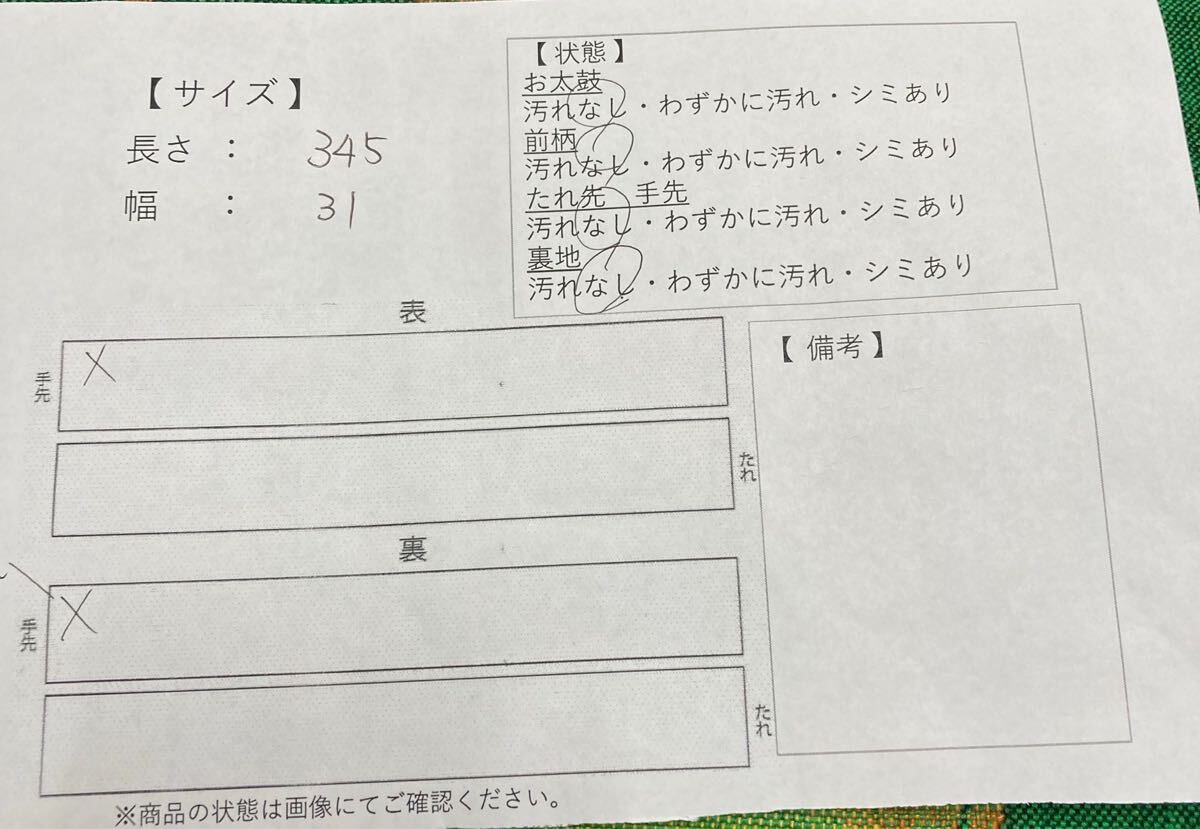 【 サイズ 】
長さ : 345
幅 : 31
【 状態 】
お太鼓
汚れなし・わずかに汚れ・シミあり
前柄
汚れなし・わずかに汚れ・シミあり
たれ先 手先
汚れなし・わずかに汚れ・シミあり
裏地
汚れなし・わずかに汚れ・シミあり
表
手先
X
たれ
裏
手先
X
たれ
【 備考 】
※商品の状態は画像にてご確認ください。